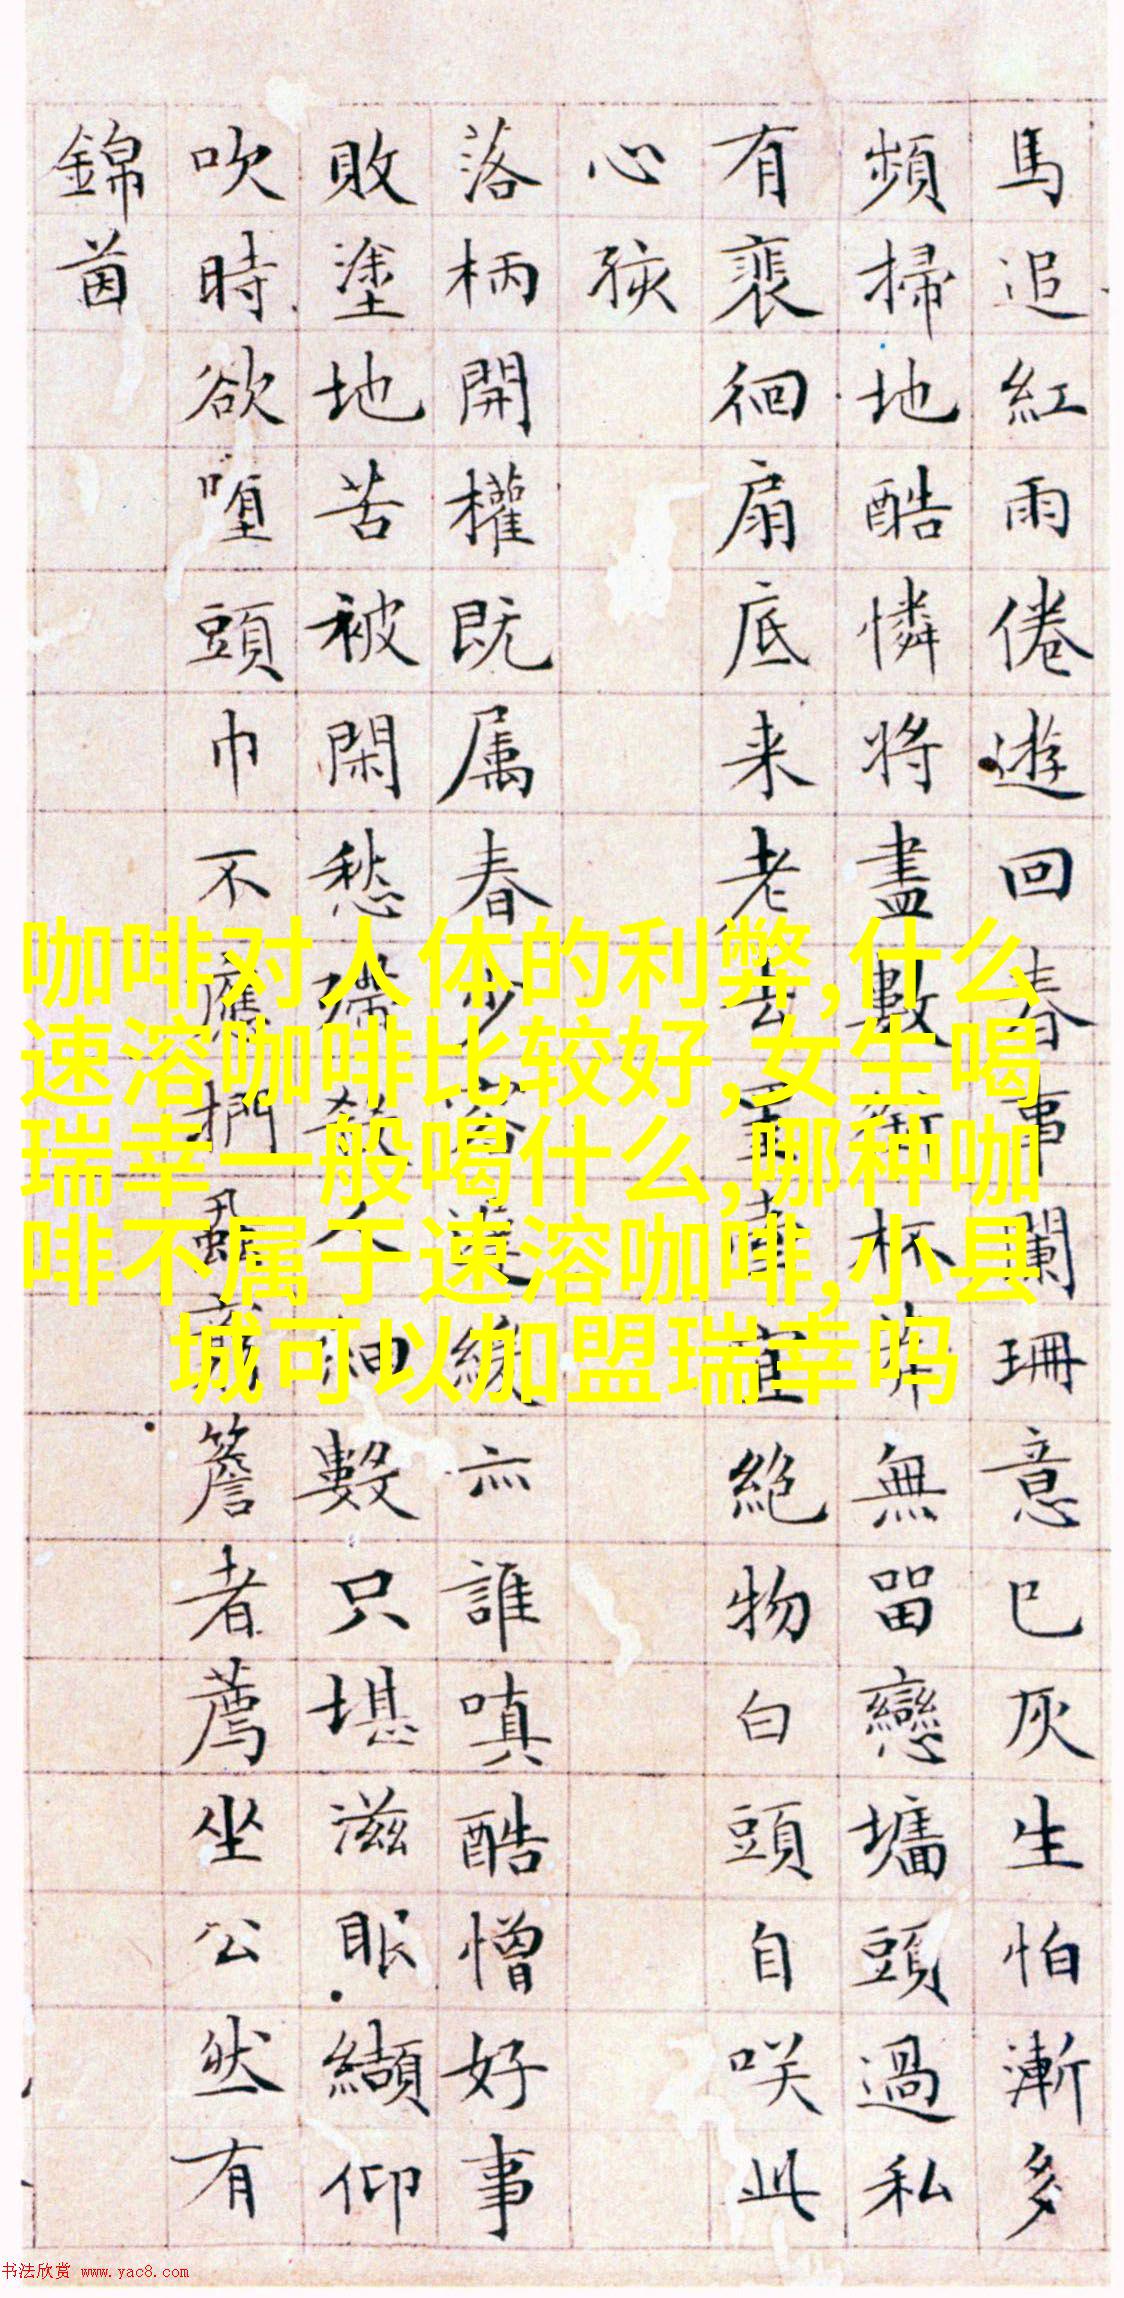 馬追紅雨倦遊回春事闌珊意已灰生怕漸多
頻掃地酷憐將盡數銜杯無畱戀墻頭過私
有裴徊扇底来老去宜絶物白頭自咲此
心孩
落柄開權既属春少容緩亦誰嗔酷憎好事
敗塗地苦被閑愁人細數只堪滋眼纈仰
吹時欲堕頭巾不應捫蝨簷者薦坐公然有
錦茵
咖啡对人体的利弊,什么
速溶咖啡比较好,女生喝
瑞幸一般喝什么,哪种咖
啡不属于速溶咖啡,小县
城可以加盟瑞幸吗
书法欣赏 www.yac8.com